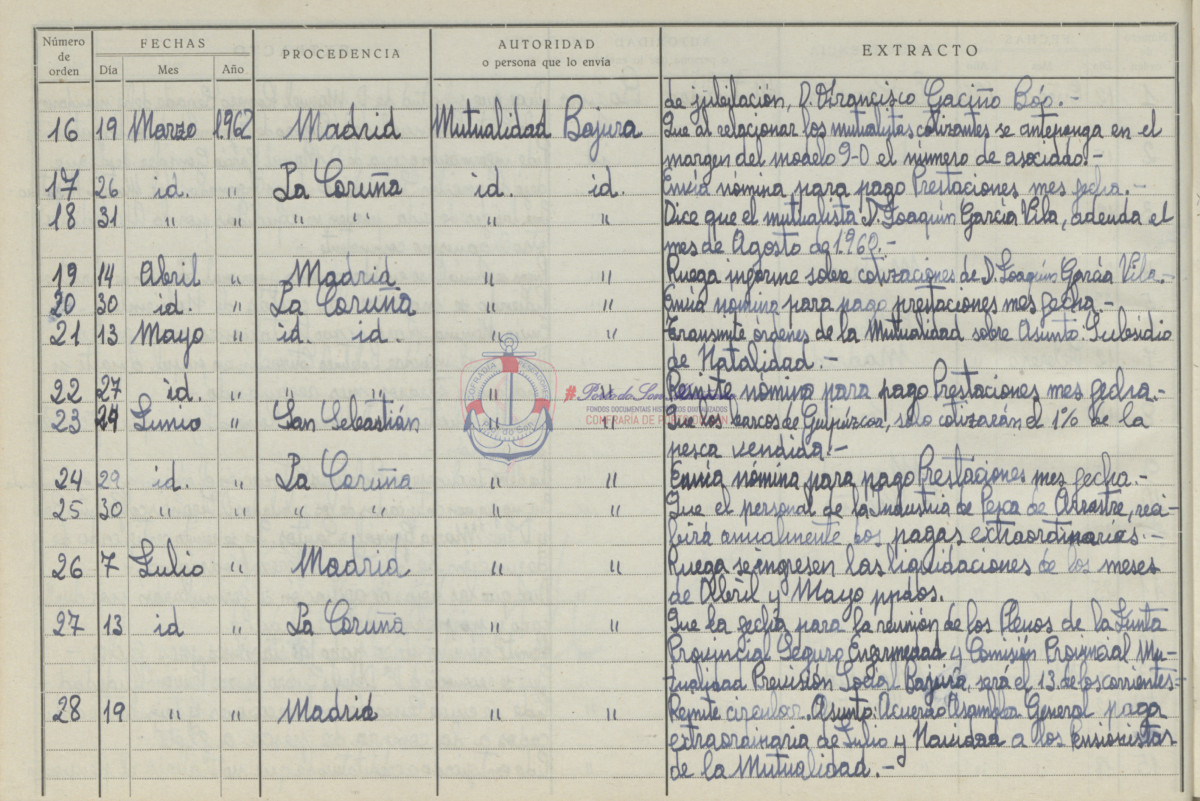 Número de orden FECHAS PROCEDENCIA AUTORIDAD o persona que lo envía EXTRACTO
Día Mes Año
de jubilación, D. Francisco Gaciño Bóo.-
16 19 Marzo 1.962 Madrid Mutualidad Bajura Que al relacionar los mutualistas cotizantes se anteponga en el
margen del modelo 9-0 el número de asociado.-
17 26 id. " La Coruña id. id. Envía nómina para pago Prestaciones mes fecha.-
18 31 " " " " " " Dice que el mutualista D. Joaquín García Vila, adeuda el
mes de Agosto de 1.960.-
19 14 Abril " Madrid " " Ruega informe sobre cotizaciones de D. Joaquín García Vila.-
20 30 id. " La Coruña " " Envía nómina para pago prestaciones mes fecha.-
21 13 Mayo " id. id. " " Transmite órdenes de la Mutualidad sobre Asunto: Subsidio
de Natalidad.-
22 27 id. " " " " " Remite nómina para pago Prestaciones mes fecha.-
23 24 Junio " San Sebastián " " Que los barcos de Guipúzcoa, solo cotizarán el 1% de la
pesca vendida.-
24 29 id. " La Coruña " " Envía nómina para pago Prestaciones mes fecha.-
25 30 " " " " " " Que el personal de la Industria de Pesca de Arrastre, reci-
birá anualmente dos pagas extraordinarias.-
26 7 Julio " Madrid " " Ruega se ingresen las liquidaciones de los meses
de Abril y Mayo ppdos.
27 13 id " La Coruña " " Que la fecha para la reunión de los Plenos de la Junta
Provincia Seguro Enfermedad y Comisión Provincial Mu-
tualidad Previsión Social Bajura, será el 13 de los corrientes-
28 19 " " Madrid " " Remite circular. Asunto: Acuerdo Asamblea General paga
extraordinaria de Julio y Navidad a los pensionistas
de la Mutualidad.-
CONFRARÍA
Porto do Son
#Porto do Son
FONDOS DOCUMENTAIS DIGITALIZADOS
CONFRARÍA DE